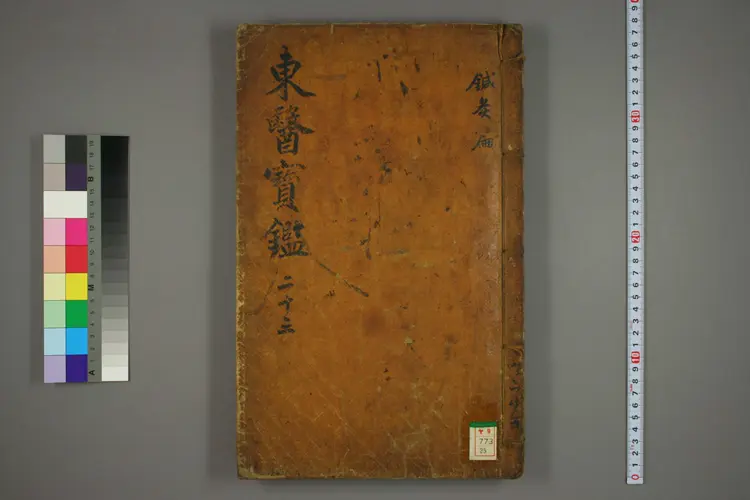 東醫寶鑑 二十三
鍼灸篇
773
23